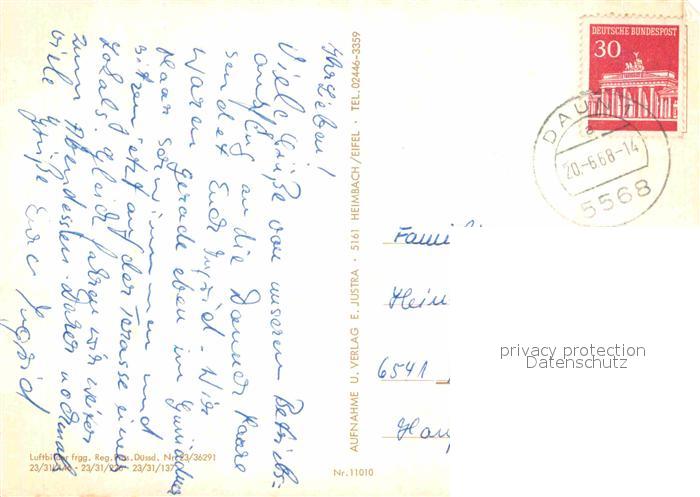 Ihr Lieben!
Viele Grüße von unserem Betriebs-
ausflug an die Dauner Maare
sendet Euch Ingrid. Wir
waren gerade eben im Gemündner
Maar schwimmen und
sitzen jetzt auf der Terasse eines
Lokals. Gleich fahren wir weiter
zum Abendessen. Daher nochmals
viele Grüße Eure Ingrid
AUFNAHME U. VERLAG E. JUSTRA · 5161 HEIMBACH/EIFEL · TEL. 02446-3359
DEUTSCHE BUNDESPOST
30
DAUN
a
20.-6.68-14
5568
Fami
Hein
6541
Hau
privacy protection
Datenschutz
Luftbilder frgg. Reg. Präs. Düssd. Nr. 23/36291
23/31/137
Nr. 11010